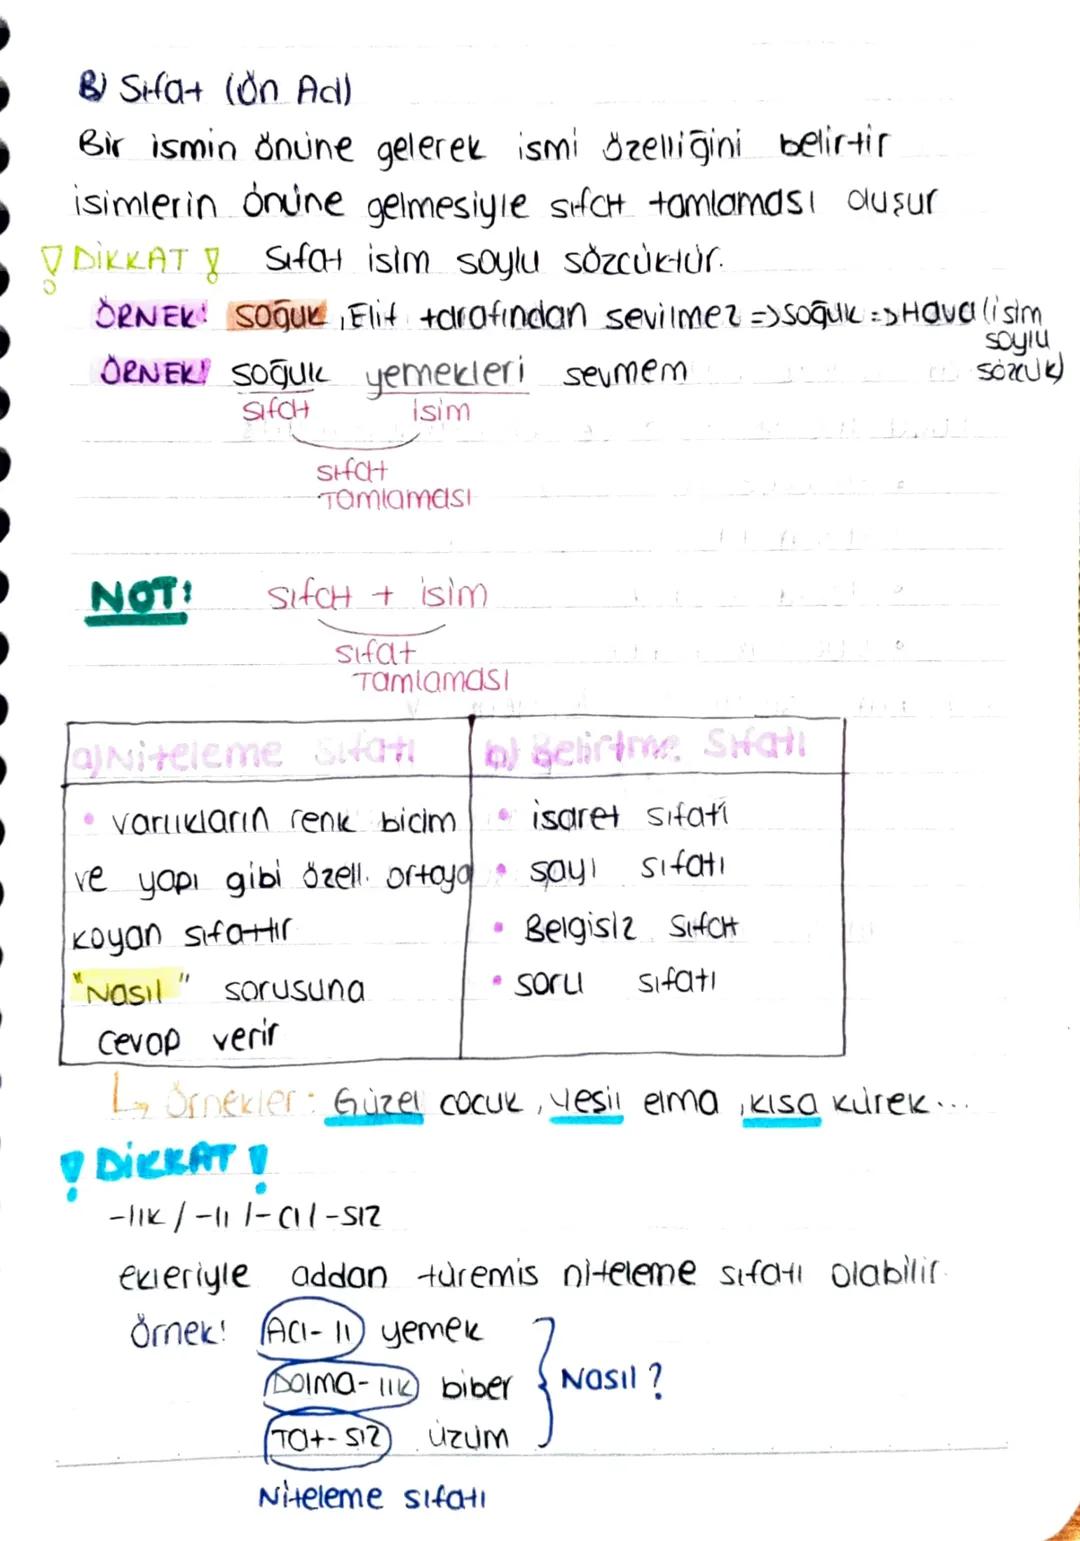 B) Sıfat (Ön Ad)
Bir ismin önüne gelerek ismi özelliğini belirtir
isimlerin önüne gelmesiyle sıfat tamlaması oluşur
! DİKKAT ! Sıfat isim soylu sözcüktür.
ÖRNEK! soğuk, Elif tarafından sevilmez => soğuk => Hava (isim
soylu
sözcük)
ÖRNEK! soğuk yemekleri sevmem
sıfat isim
sıfat
Tamlaması
NOT! sıfat + isim
sıfat
Tamlaması
a) Niteleme Sıfatı
• varlıkların renk bicim
ve yapı gibi özell. ortaya
koyan sıfattır
"Nasıl" sorusuna
cevap verir
b) Belirtme Sıfatı
• isaret sıfatı
• sayı sıfatı
• Belgisiz Sıfat
• soru sıfatı
↳ Örnekler: Güzel cocuk, Yesil elma, kısa kürek...
! DİKKAT !
-lık / -lı / -cı / -sız
ekleriyle addan türemis niteleme sıfatı olabilir.
Örnek! Acı-lı yemek
Dolma-lık biber
Tat-sız üzüm
Nasıl?
Niteleme sıfatı